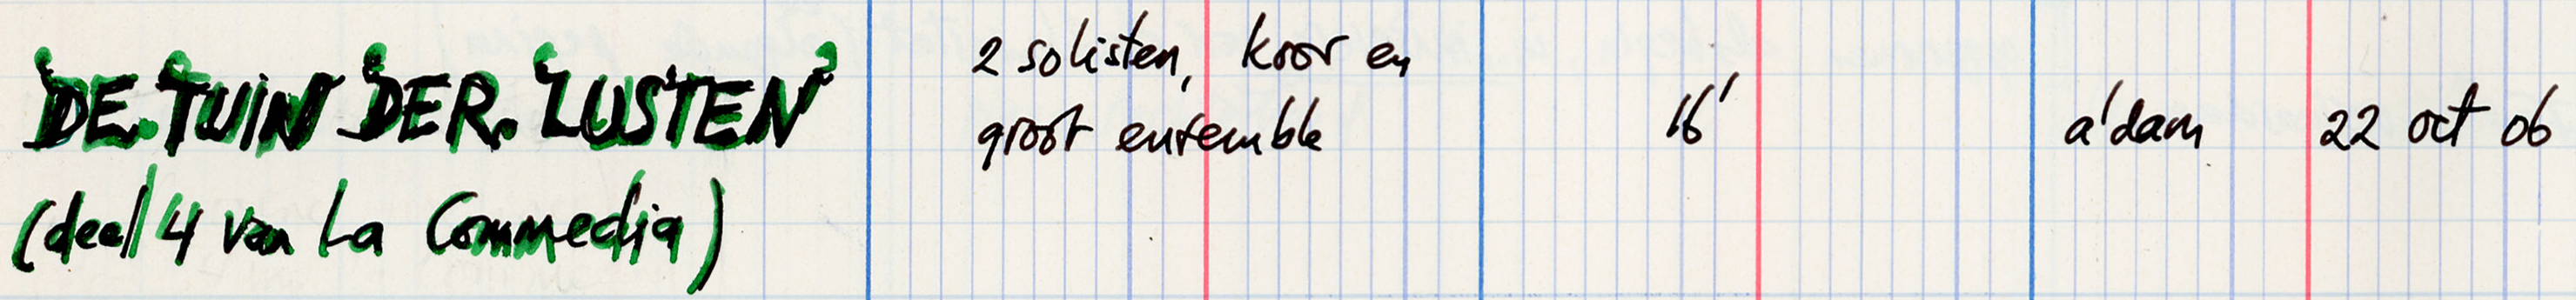 DE TUIN DER LUSTEN
(deel 4 van La Commedia)
2 solisten, koor en
groot ensemble
16'
a'dam
22 oct 06